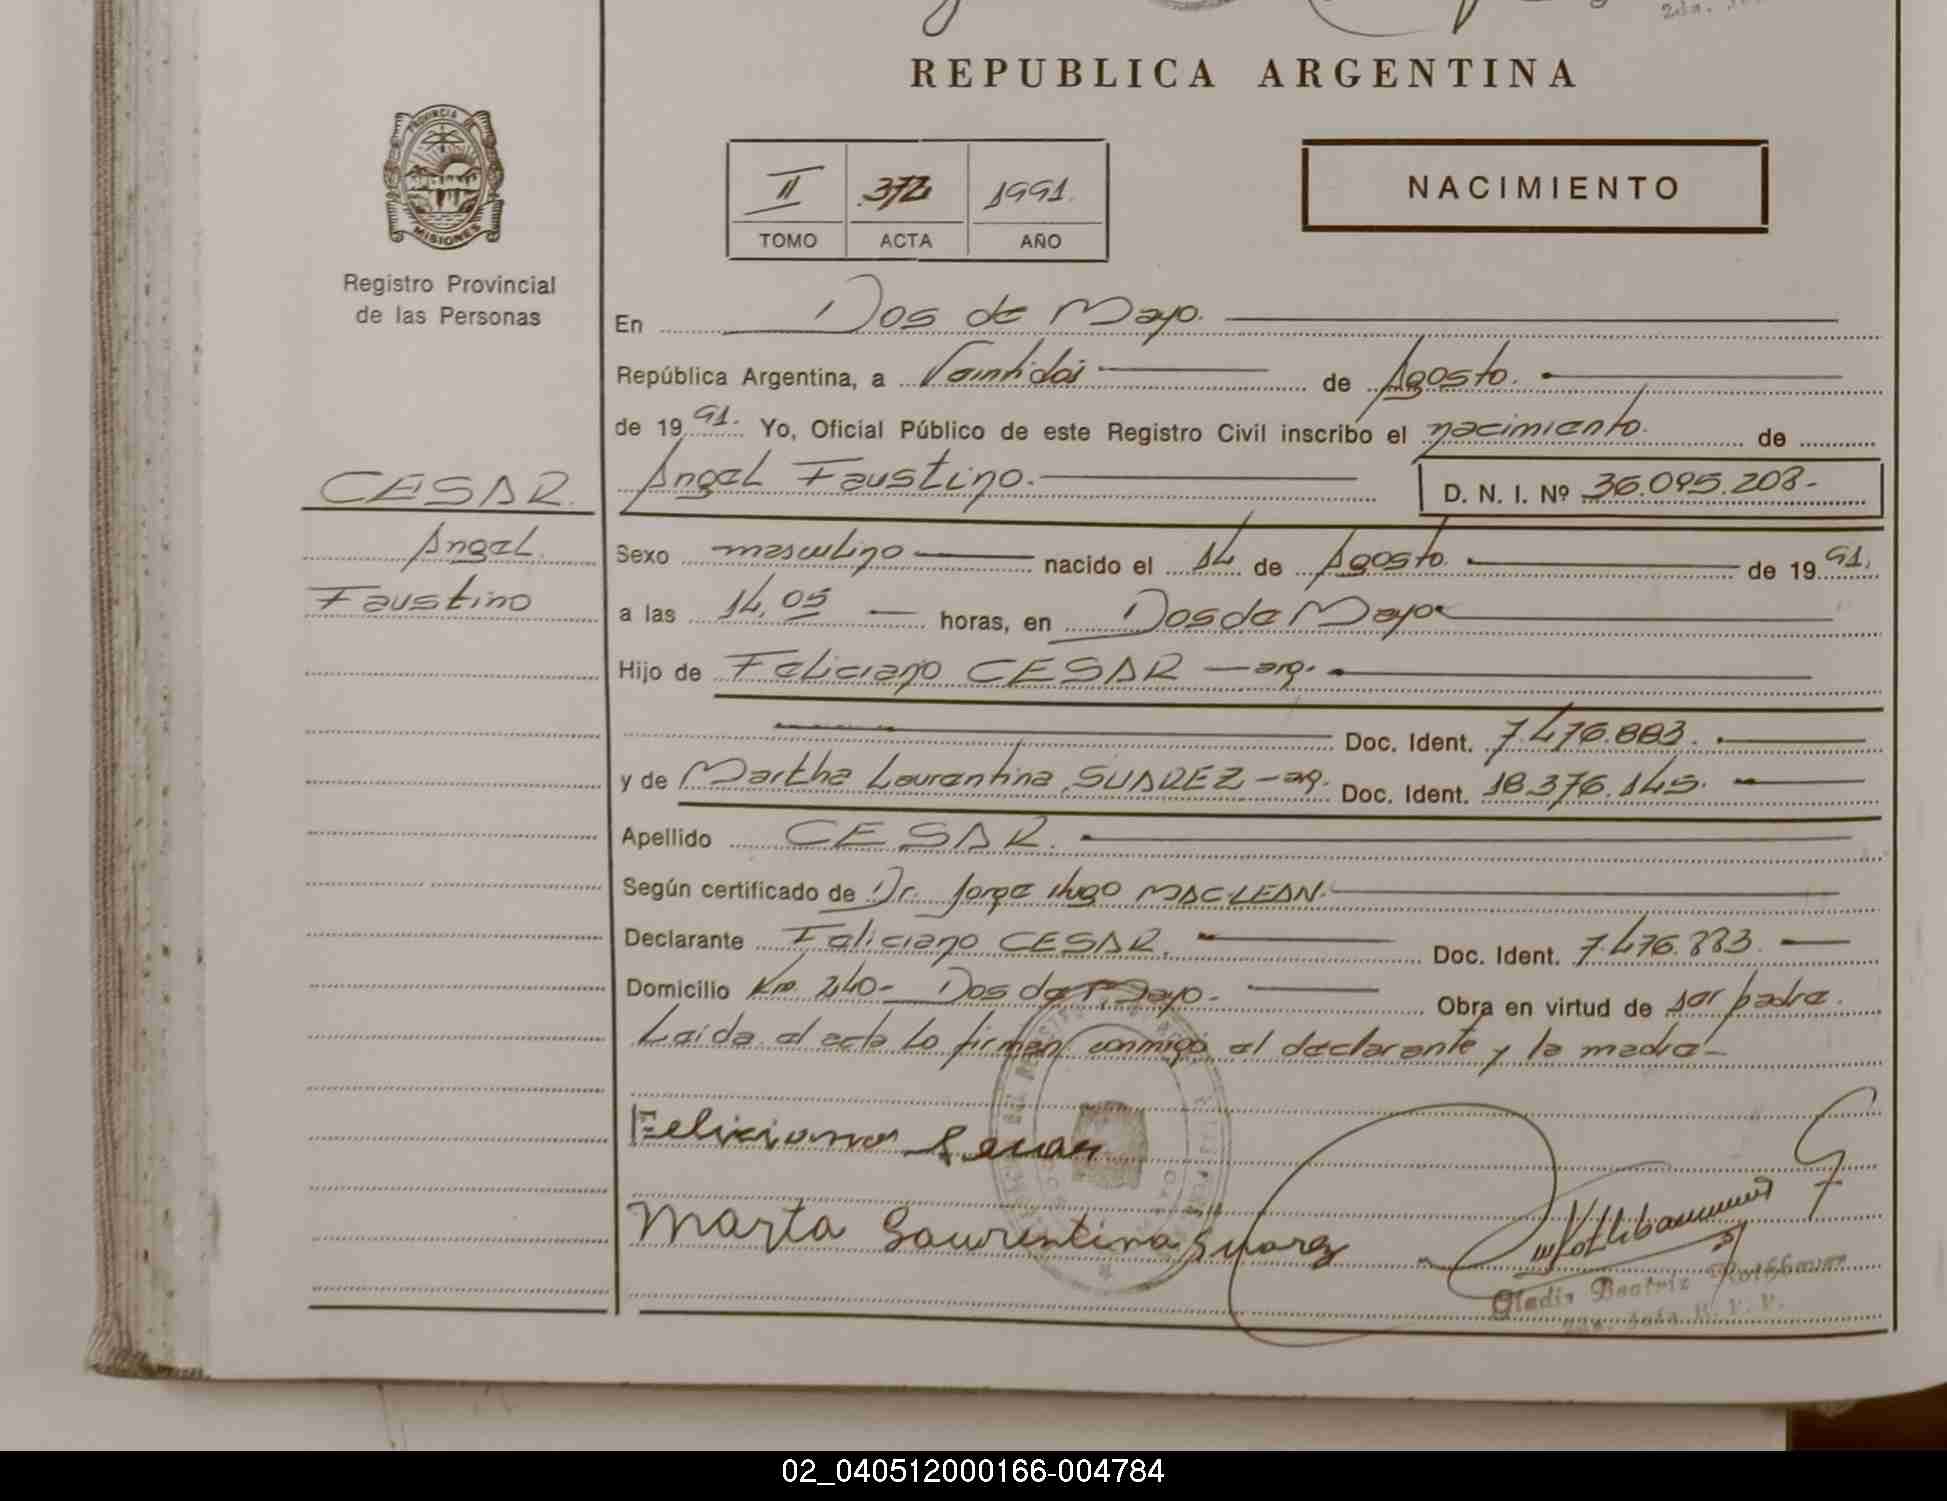 REPUBLICA ARGENTINA
PROVINCIA DE
MISIONES
Registro Provincial
de las Personas
II 372 1991.
TOMO ACTA AÑO
NACIMIENTO
En Dos de Mayo.
República Argentina, a Veintidós de Agosto.
de 19 91. Yo, Oficial Público de este Registro Civil inscribo el nacimiento. de
Angel Faustino. D. N. I. Nº 36.095.208-
CESAR.
Angel
Faustino
Sexo masculino nacido el 14 de Agosto. de 19 91.
a las 14,05 horas, en Dos de Mayo
Hijo de Feliciano CESAR — arg.
Doc. Ident. 7.476.883.
y de Martha Laurentina SUAREZ - arg. Doc. Ident. 18.376.145.
Apellido CESAR.
Según certificado de Dr. Jorge Hugo MACLEAN.
Declarante Feliciano CESAR. Doc. Ident. 7.476.883.
Domicilio Km. 240- Dos de Mayo. Obra en virtud de ser padre.
Leída el acta lo firman conmigo el declarante y la madre-
Feliciano Sesar
Marta Laurentina Suarez
Gladis Beatriz
02_040512000166-004784